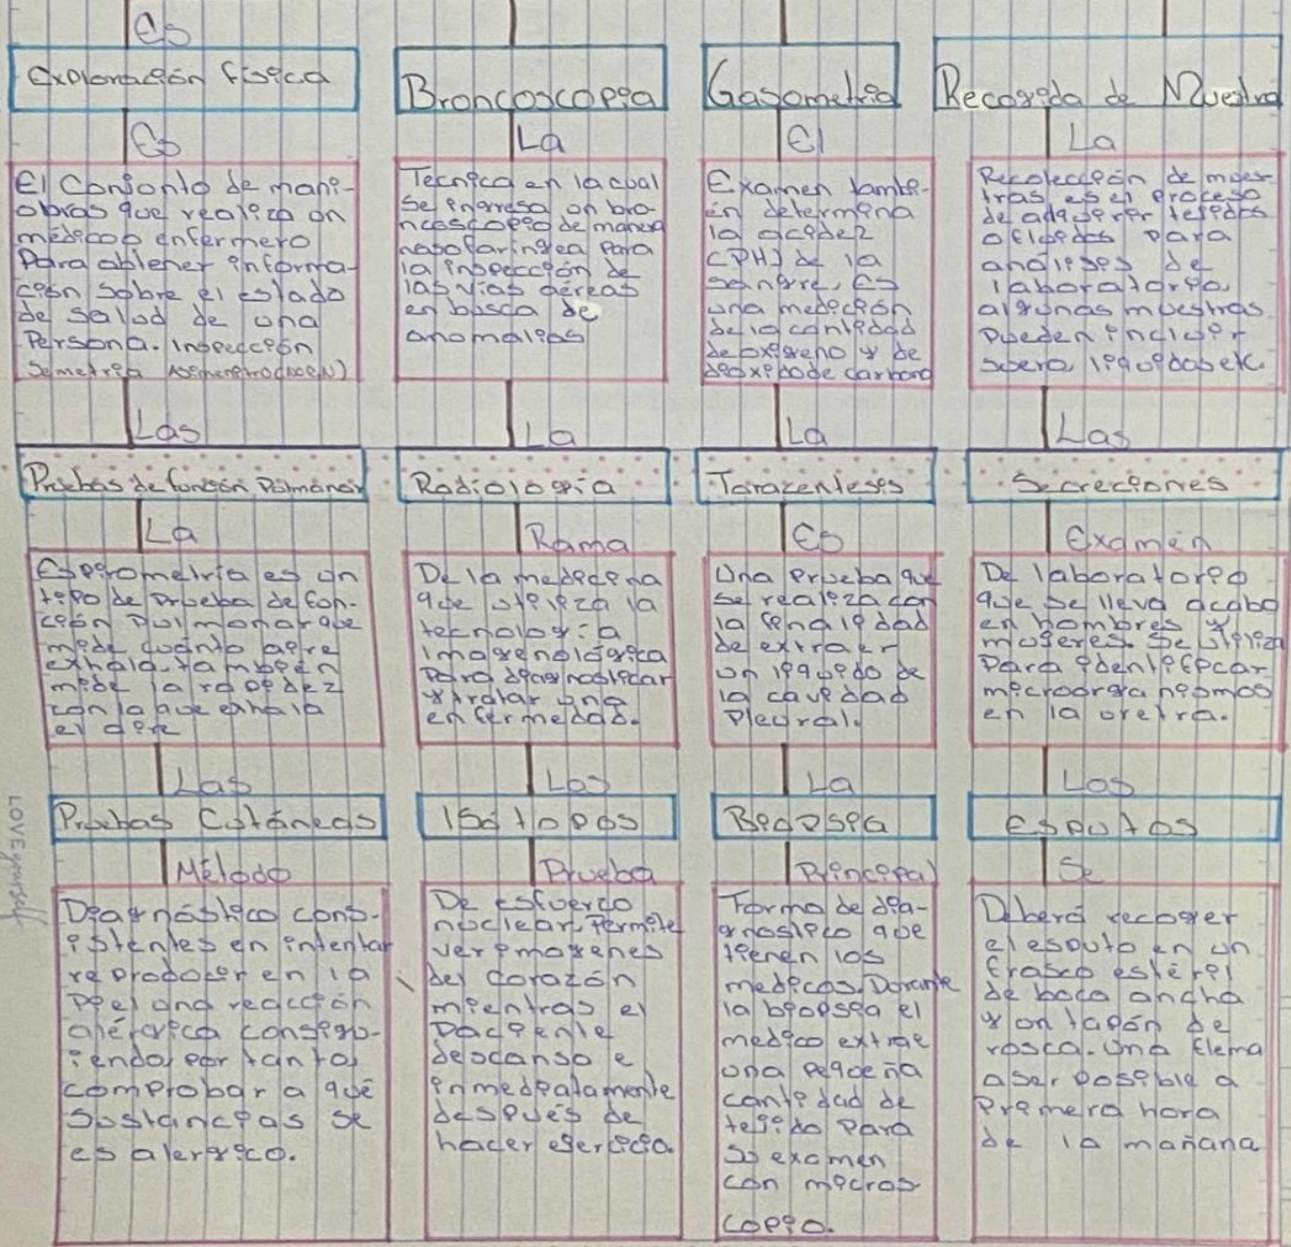 Es
Exploración física
Es
El Conjonto de mani-
obras que realiza un
médico o enfermero
Para obtener informa-
ción sobre el estado
de salud de una
Persona. Inspección
Simetria
Las
Pruebas de función Pulmonar
La
Espirometria es un
tipo de prueba de fun-
ción pulmonar que
mide cuánto aire
exhala. también
mide la rapidez
con la que exhala
el aire
Las
Pruebas Cutáneas
Método
Diagnóstico cons-
istentes en intentar
reproducir en la
piel una reacción
alérgica consigu-
iendo, por tanto,
comprobar a qué
Sustancias se
es alergico.
Broncoscopia
La
Tecnica en la cual
se ingresa un bro-
ncoscopio de manera
nasofaringea para
la inspección de
las vías aéreas
en busca de
anomalias
La
Radiologia
Rama
De la medicina
que utiliza la
tecnologia
imagenológica
Para diagnosticar
y tratar una
enfermedad.
Los
Isótopos
Prueba
De esfuerzo
nuclear. Permite
ver imagenes
del Corazón
mientras el
paciente
descansa e
inmediatamente
después de
hacer ejercicio.
Gasometria
El
Examen tambi-
én determina
la acidez
(PH) de la
sangre. Es
una medición
de la cantidad
de oxigeno y de
dioxido de carbono
La
Toracentesis
Es
Una prueba que
se realiza con
la finalidad
de extraer
un liquido de
la cavidad
Pleural.
La
Biopsia
Principal
Forma de dia-
gnostico que
tienen los
medicos. Durante
la biopsia el
medico extrae
una pequeña
cantidad de
tejido para
su examen
con micros-
copio.
Recogida de Muestra
La
Recolección de mues-
tras es el proceso
de adquirir tejidos
o fluidos para
análisis de
laboratorio,
algunas muestras
pueden incluir
suero, liquidos etc.
Las
Secreciones
Examén
De laboratorio
que se lleva acabo
en hombres y
mujeres. Se utiliza
para identificar
microorganismos
en la uretra.
Los
Esputos
Se
Deberá recoger
el esputo en un
frasco estéril
de boca ancha
y un tapón de
rosca. una flema
a ser posible a
Primera hora
de la mañana
LOVE yourself